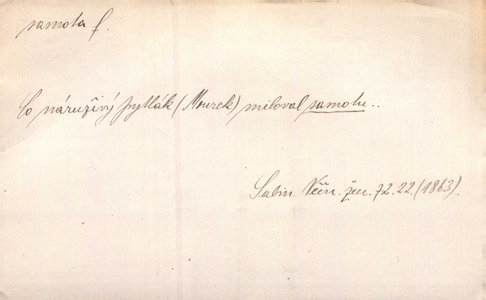 samota f.
Co náruživý pytlák (Mourek) miloval samotu..
Sabin. Věčn. žen. 72.22 (1863).